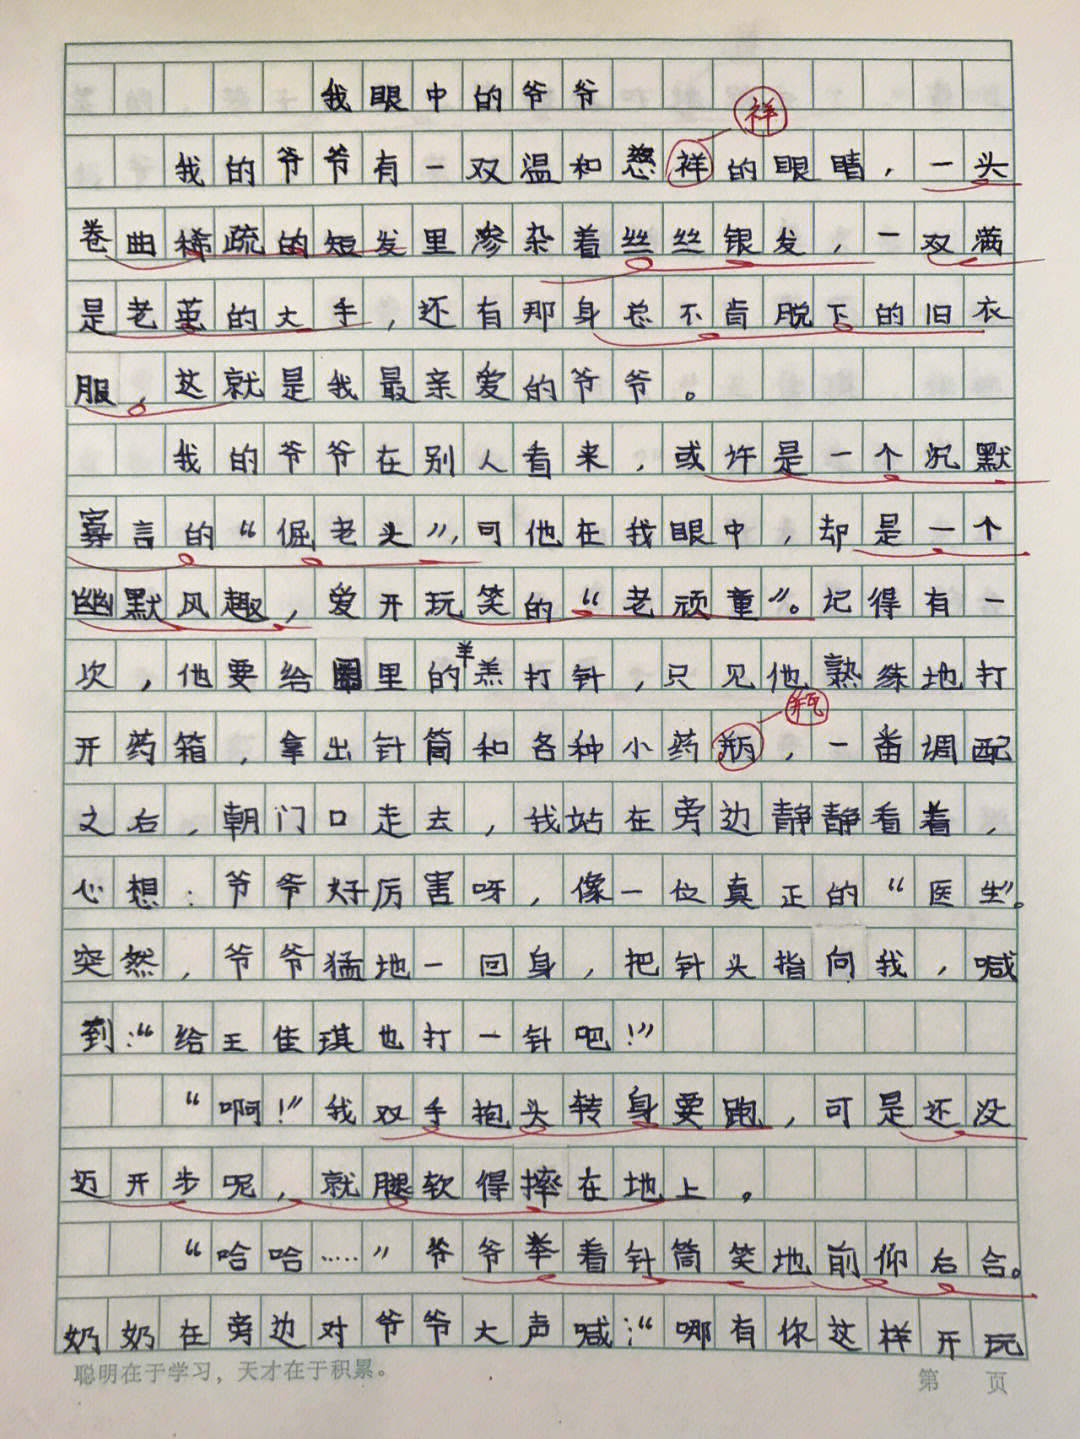 我眼中的爷爷
祥
我的爷爷有一双温和慈祥的眼睛，一头
卷曲稀疏的短发里渗杂着丝丝银发，一双满
是老茧的大手，还有那身总不肯脱下的旧衣
服，这就是我最亲爱的爷爷。
我的爷爷在别人看来，或许是一个沉默
寡言的“倔老头”，可他在我眼中，却是一个
幽默风趣，爱开玩笑的“老顽童”。记得有一
次，他要给圈里的羊羔打针，只见他熟练地打
瓶
开药箱，拿出针筒和各种小药瓶，一番调配
之后，朝门口走去，我站在旁边静静看着，
心想：爷爷好厉害呀，像一位真正的“医生”。
突然，爷爷猛地一回身，把针头指向我，喊
到：“给王佳琪也打一针吧！”
“啊！”我双手抱头转身要跑，可是还没
迈开步呢，就腿软得摔在地上。
“哈哈……”爷爷举着针筒笑地前仰后合。
奶奶在旁边对爷爷大声喊：“哪有你这样开玩
聪明在于学习，天才在于积累。
第 页